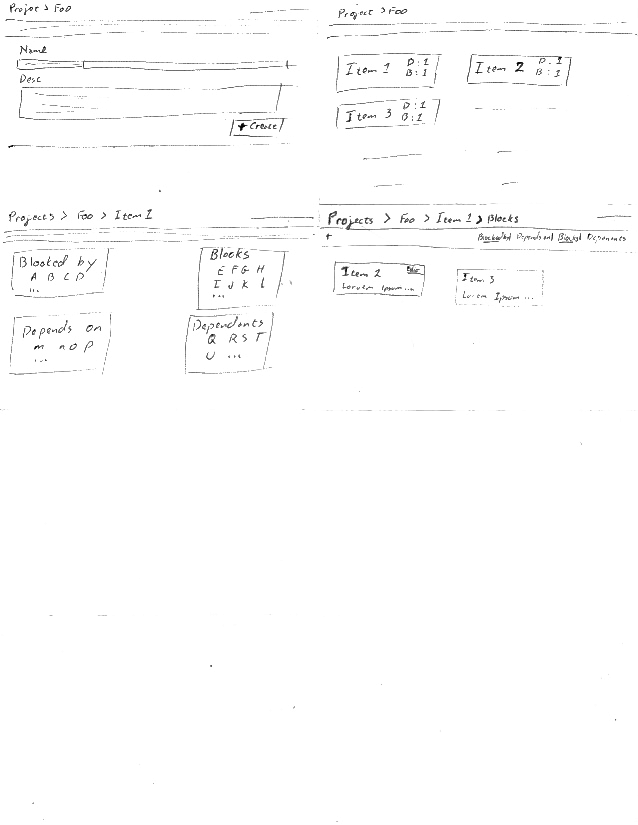 Project > Foo
Name
Desc
+ Create
Project > Foo
Item 1 D:1
B:1
Item 2 D:1
B:1
Item 3 D:1
B:1
Projects > Foo > Item 1
Blocked by
A B C D
...
Blocks
E F G H
I J K L
...
Depends on
m n o p
...
Dependants
Q R S T
U ...
Projects > Foo > Item 1 > Blocks
+
Depends on
Item 2
Lorem Ipsum ...
Item 3
Lorem Ipsum ...